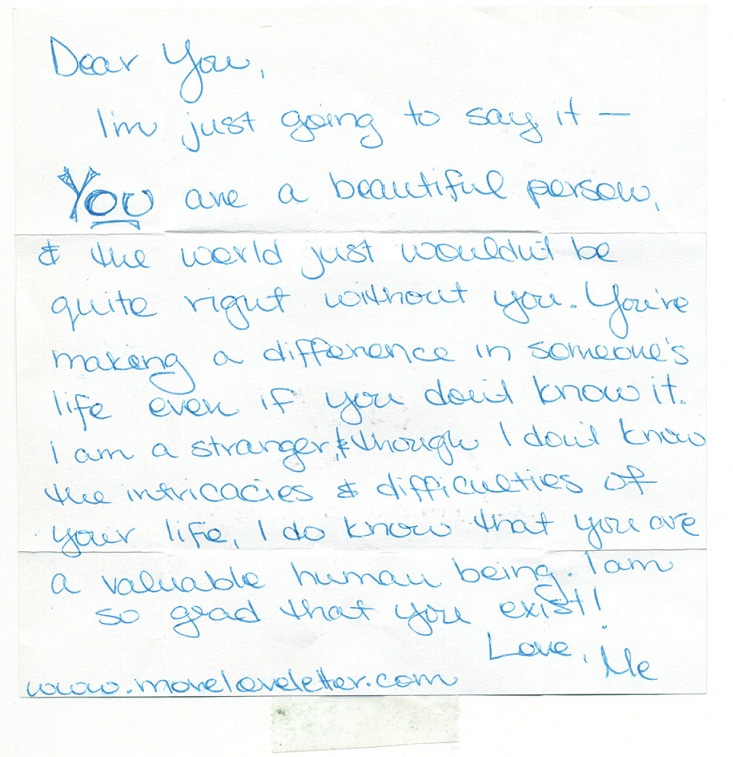 Dear You,
I'm just going to say it —
You are a beautiful person,
& the world just wouldn't be
quite right without you. You're
making a difference in someone's
life even if you don't know it.
I am a stranger, & though I don't know
the intricacies & difficulties of
your life, I do know that you are
a valuable human being. I am
so grad that you exist!
Love, Me
www.moreloveletter.com